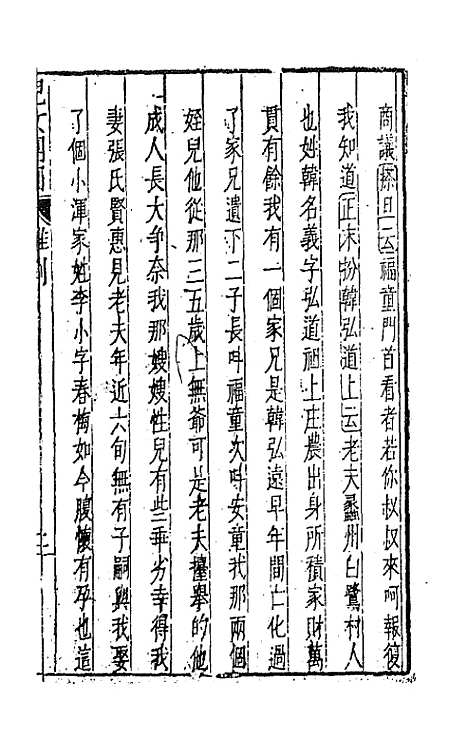 商議搽旦云福童門首看者若你叔叔來呵報復
我知道正末扮韓弘道上云老夫蠡州白鷺村人
也姓韓名義字弘道祖上庄農出身所積家財萬
貫有餘我有一個家兄是韓弘遠早年間亡化過
了家兄遺下二子長呌福童次呌安童我那兩個
姪兒他從那三五歲上無爺可是老夫擡舉的他
成人長大争奈我那嫂嫂性兒有些乖劣幸得我
妻張氏賢惠見老夫年近六旬無有子嗣與我娶
了個小渾家姓李小字春梅如今腹懷有孕也這
兒女團圓
雜劇
二